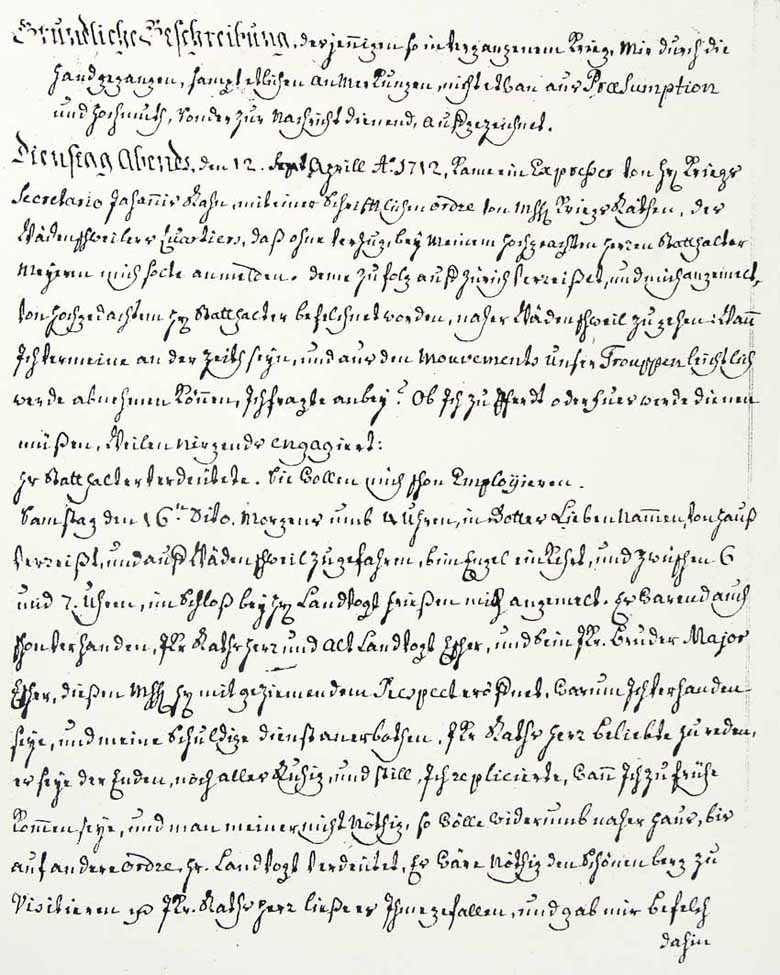 Gründliche Beschreibung, derjennigen so in vergangenem Krieg, Mir durch die
Handgegangen, sampt etlichen Anmerkungen, nicht etwan aus Præsumption
und Hochmuth, Sonder zur Nachricht dienend, auffgezeichnet.
Dienstag Abends, den 12. Aprill Aº. 1712, Kame ein Expresser von Hr. Kriegs
Secretario Johannis Rahn, mit einer Schrifftlichen ordre von Kriegs Räthen, des
Wädenschweilers Quartiers, daß ohne verzug, bey Meinem Hochgeachten Herren Statthalter
Meyeren mich solte anmelden. deme zu folg auff Zürich verreißet, und mich angemelt,
von Hochgedachtem Hr. Statthalter befelchnet worden, naher Wädenschweil zu gehen: Wañ
Ich vermeine an der Zeith seyn, und aus den Mouvements unser Trouppen leichtlich
werde abnehmen Können, Ich fragte anbey? Ob Ich zu Pferdt oder fues werde dienen
müßen, Weilen nirgends engagiert:
Hr Statthalter verdeütete. Sie Wollen mich schon Employieren.
Samstag den 16.ᵗ Dito. Morgens umb 4 Uhren, in Gottes Lieben Nammen, von hauß
verreißt, und auff Wädenschweil zugefahren, bim Engel ein Kehrt, und zwüschen 6
und 7. Uhren, im Schloß bey Hr. Landvogt Frießen mich angemelt. Es Warend auch
schon verhanden, JKr. Rathsherr und alt Landvogt Escher, und sein JKr. Bruder Major
Escher, dießen mit geziemendem Respect eröffnet, Warum Ich verhanden
seye, und meine Schuldige dienst anerbothen. JKr Raths herr beliebte zu reden,
es seye der Enden, noch alles Ruhig, und still, Ich replicierte, Wañ Ich zu frühe
Kommen seye, und man meiner nicht Nöthig, so Wölle widerumb naher Haus, bis
auf andere ordre, Hr. Landvogt verdeütet, Es Wäre Nöthig den Schönenberg zu
Visitieren JKr. Rathsherr ließe es Ihme gefallen, und gab mir befelch
dahin